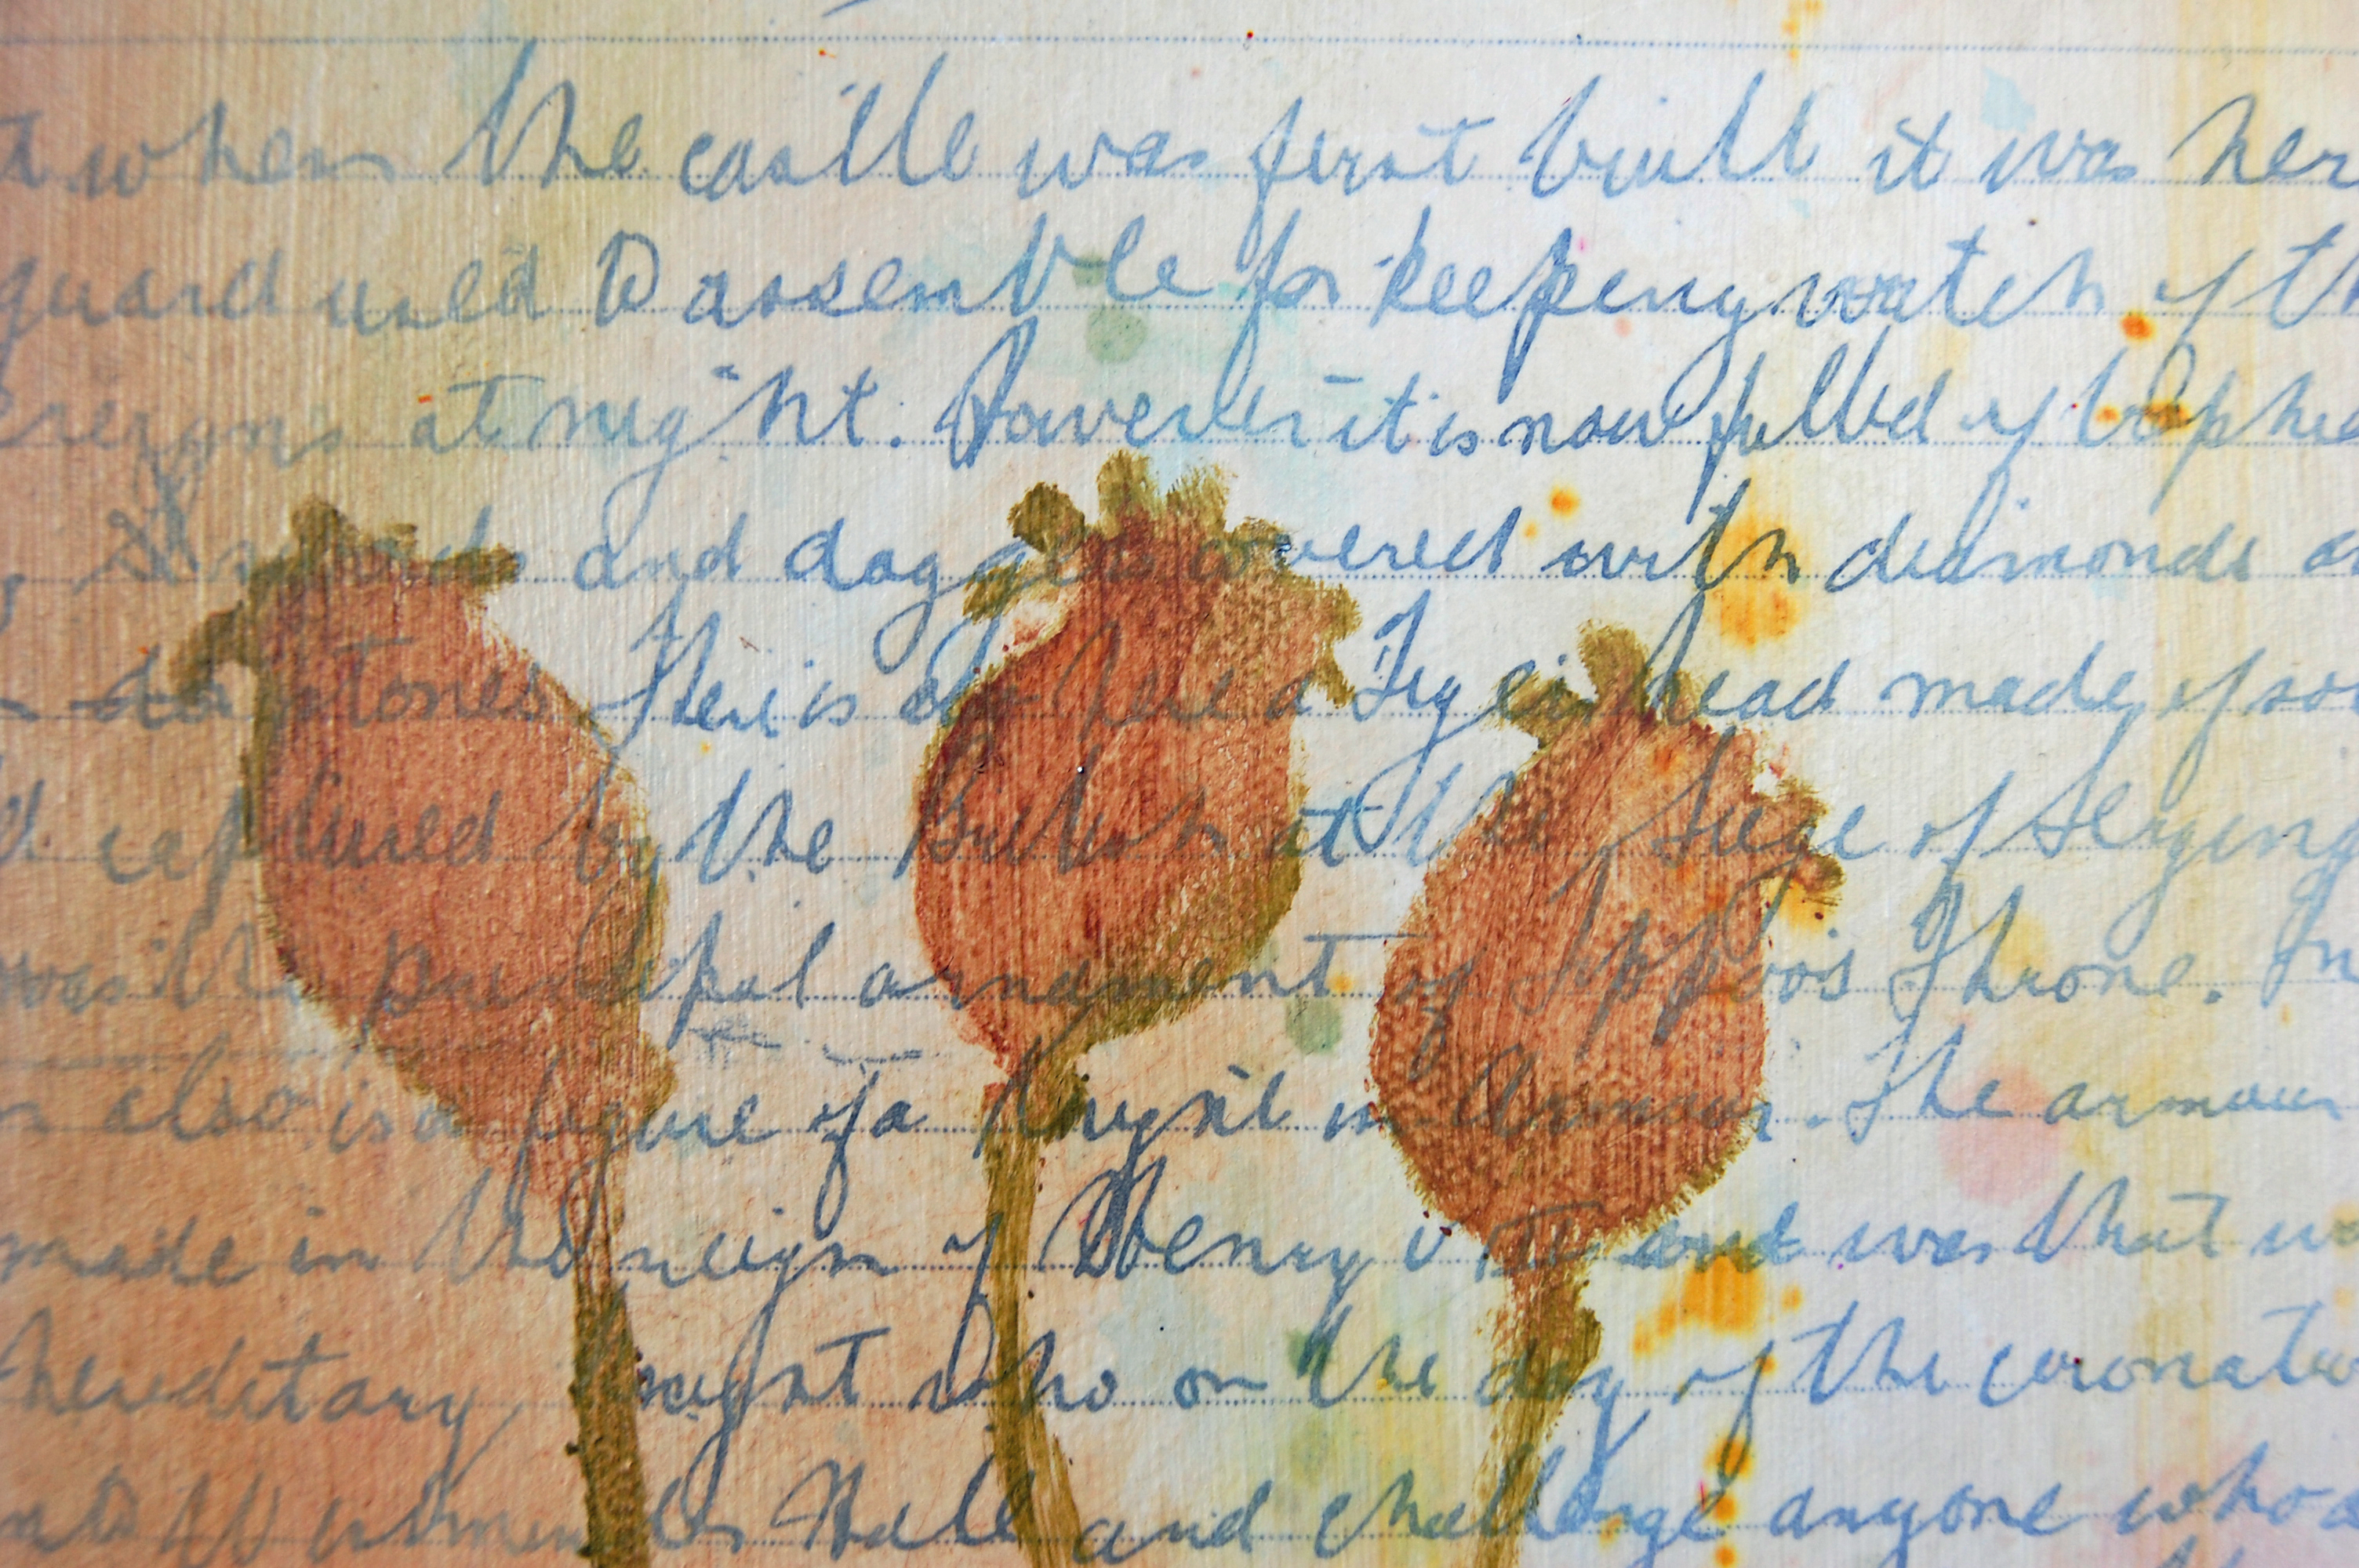 when the castle was first built it was her
guard used to assemble for keeping watch of th
at night. However it is now filled of
and daggers covered with diamonds
stones. There is also here a Tiger head made of
captured by the British at the Siege of Sering
was the principal ornament of Tippoo's Throne. In
also is a figure of a Knight in Armour. The armour
made in the reign of Henry VIII and was that
hereditary Knight who on the day of the coronation
Hall and challenge anyone who